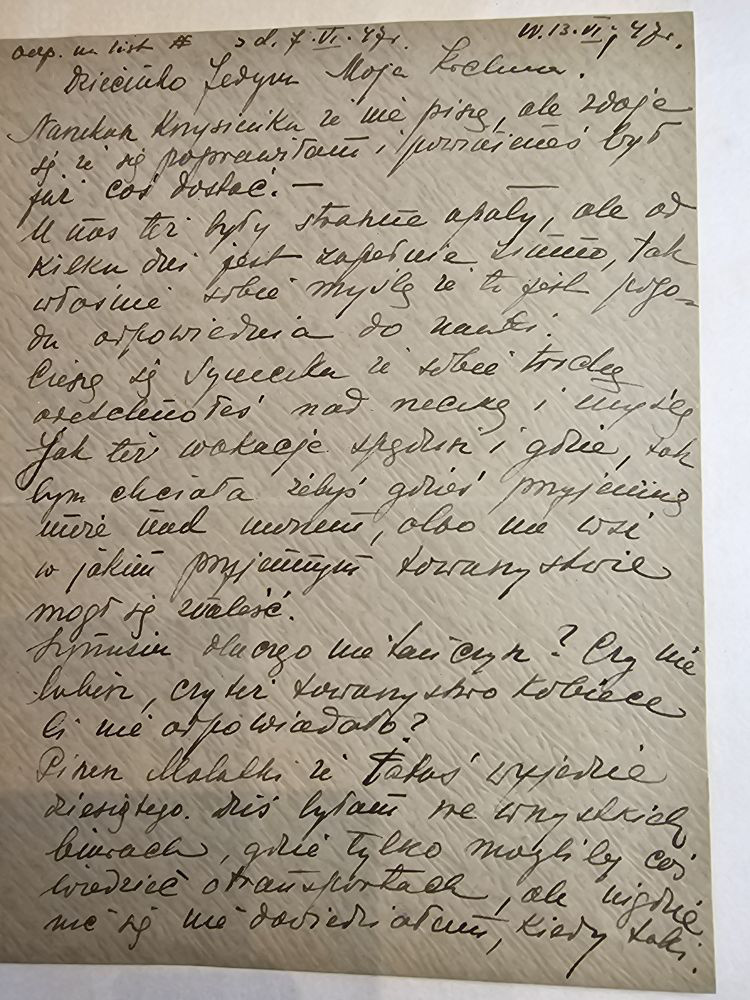 odp. na list # z d. 7.VI.47r. W. 13.VI.47r.
Dziecinko Jedyna Moja Kochana.
Narzekasz Krzysieńka że nie piszę, ale zdaje
się że się poprawiłam i powinieneś był
już coś dostać. —
U nas też były straszne upały, ale od
kilku dni jest zupełnie zimno, tak
właśnie sobie myślę że to jest pogo-
da odpowiednia do nauki.
Cieszę się Syneczku że sobie trochę
odetchnąłeś nad rzeczką i myślę
Jak też wakacje spędzisz i gdzie, tak
bym chciała żebyś gdzieś przyjemnie
może nad morzem, albo na wsi
w jakim przyjemnym towarzystwie
mógł się znaleść.
Synusiu dlaczego nie tańczysz? Czy nie
lubisz, czy też towarzystwo kobiece
Ci nie odpowiadało?
Piszesz Maleńki że Tatuś wyjedzie
dziesiątego. Dziś byłam we wszystkich
biurach, gdzie tylko mogliby coś
wiedzieć o transportach, ale nigdzie
nic się nie dowiedziałam, kiedy taki.